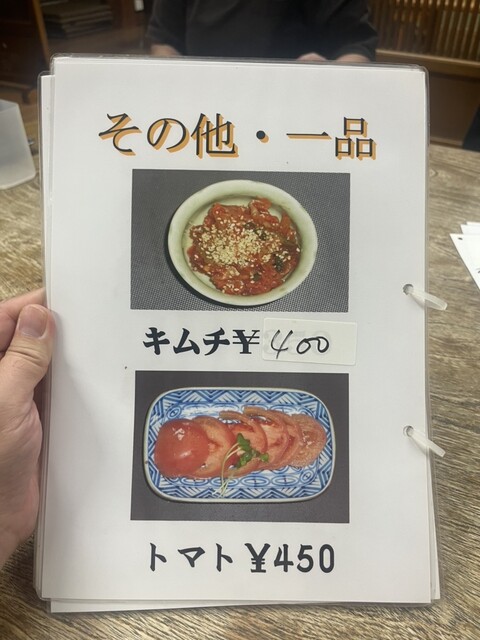 その他・一品
キムチ¥400
トマト¥450